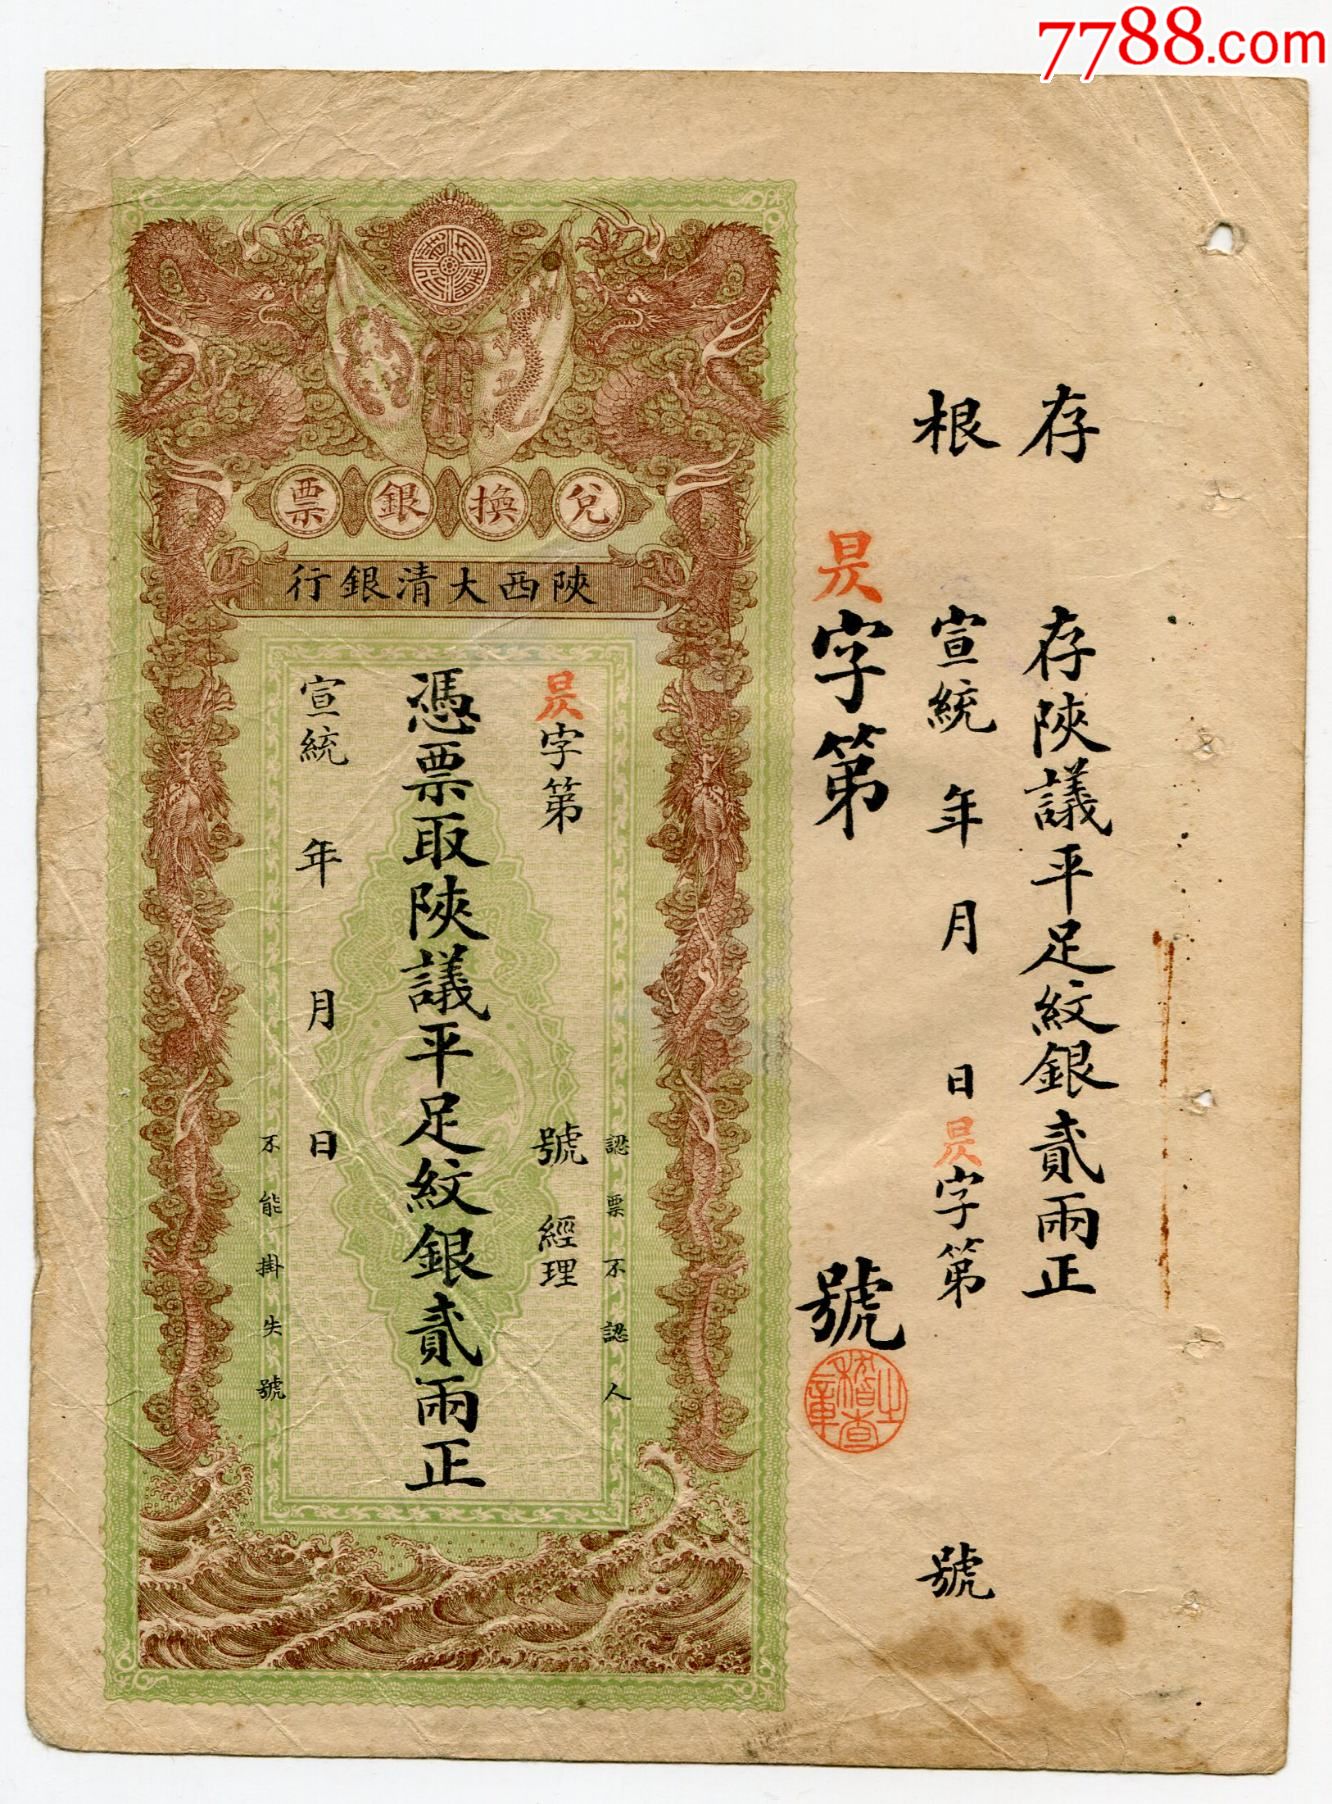 7788.com
存根
存陝議平足紋銀貳兩正
宣統 年 月 日昃字第 號
昃字第 號
稽查之章
兌換銀票
陝西大清銀行
認票不認人
昃字第 號 經理
憑票取陝議平足紋銀貳兩正
宣統 年 月 日
不能掛失號